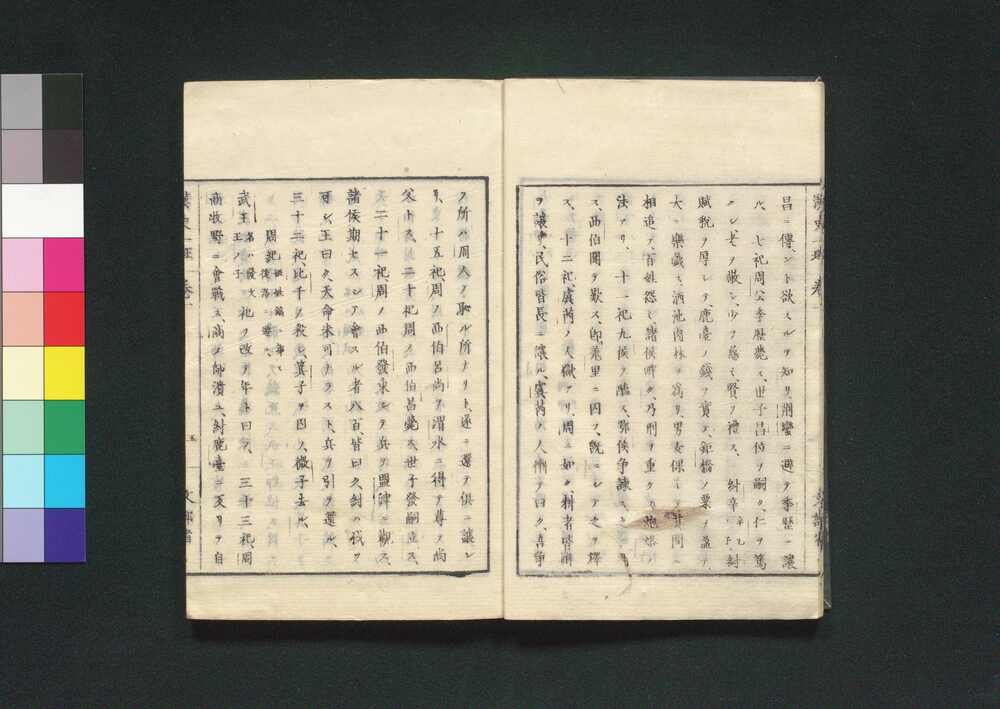 昌ニ傳ント欲スルヲ知リ荊蠻ニ避テ季歷ニ讓
ル、七祀周公季歷薨ス、世子昌位ヲ嗣ク、仁ヲ篤
クシ老ヲ敬シ、少ヲ慈ミ賢ヲ禮ス、紂辛
賦稅ヲ厚シテ、鹿臺ノ錢ヲ實テ、鉅橋ノ粟ヲ盈テ、
大ニ樂戲ス、酒池肉林ヲ爲リ、男女倮ニシテ其間ニ
相追フ、百姓怨ミ諸侯畔ク、乃刑ヲ重クシ炮烙ノ
法アリ、十一祀九侯ヲ醢ス、鄂侯爭諫ス
ス、西伯聞テ歎ス、羑里ニ囚フ、旣ニシテ之ヲ釋
ス、十二祀、虞芮ノ人獄アリ、周ニ如ク
ヲ讓リ、民俗皆長ニ讓ル、虞芮ノ人慚テ曰ク、吾爭
フ所ハ周人ノ恥ル所ナリト、遂ニ還テ俱ニ讓レ
リ、十五祀、周ノ西伯呂尚ヲ渭水ニ得テ尊テ尚
父トス、二十祀周ノ西伯昌薨ス世子發嗣立ス、
二十一祀、周ノ西伯發東シテ兵ヲ盟津ニ觀ス、
諸侯期セスシテ會スル者八百皆曰ク紂ハ伐ツ
可シ、王曰ク、天命未可ナラスト、兵ヲ引テ還ル、
三十二祀、比干ヲ殺シ、箕子ヲ囚ヘ、微子去ル、
周紀
武王名ハ發文王ノ子祀ヲ改テ年ト曰フ、三十三祀、周
商牧野ニ會戰ス、商ノ師潰ユ、紂鹿臺ニ反リテ自
五
文部省